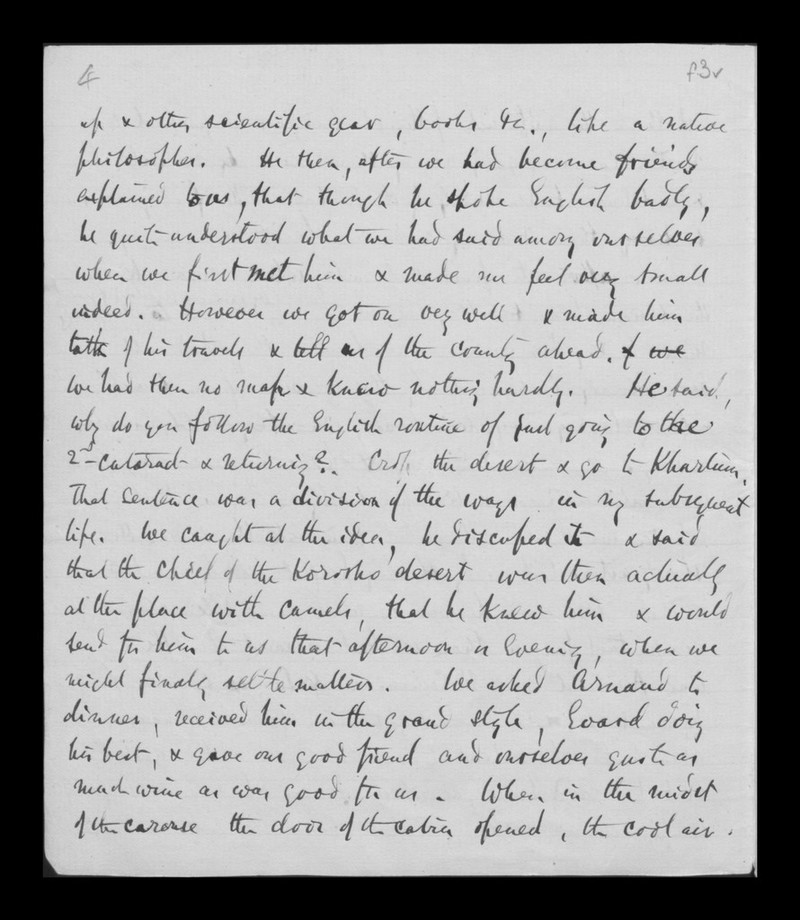 4 f3v
up & other scientific gear, books &c., like a native
philosopher. He then, after we had become friends
explained to us, that though he spoke English badly,
he quite understood what we had said among ourselves
when we first met him & made me feel very small
indeed. However we got on very well & made him
talk of his travels & tell us of the country ahead. & we
we had then no maps & knew nothing hardly. He said,
why do you follow the English routine of just going to the
2nd Cataract & returning?. Cross the desert & go to Khartum.
That sentence was a division of the ways in my subsequent
life. We caught at the idea, he discussed it & said
that the chief of the Korosko desert was then actually
at the place with camels, that he knew him & would
send for him to us that afternoon or Evening, when we
might finally settle matters. We asked Arnaud to
dinner, received him in the grand style, doing
his best, & gave our good friend and ourselves quite as
much wine as was good for us. When in the midst
of the carouse the door of the cabin opened, the cool air.